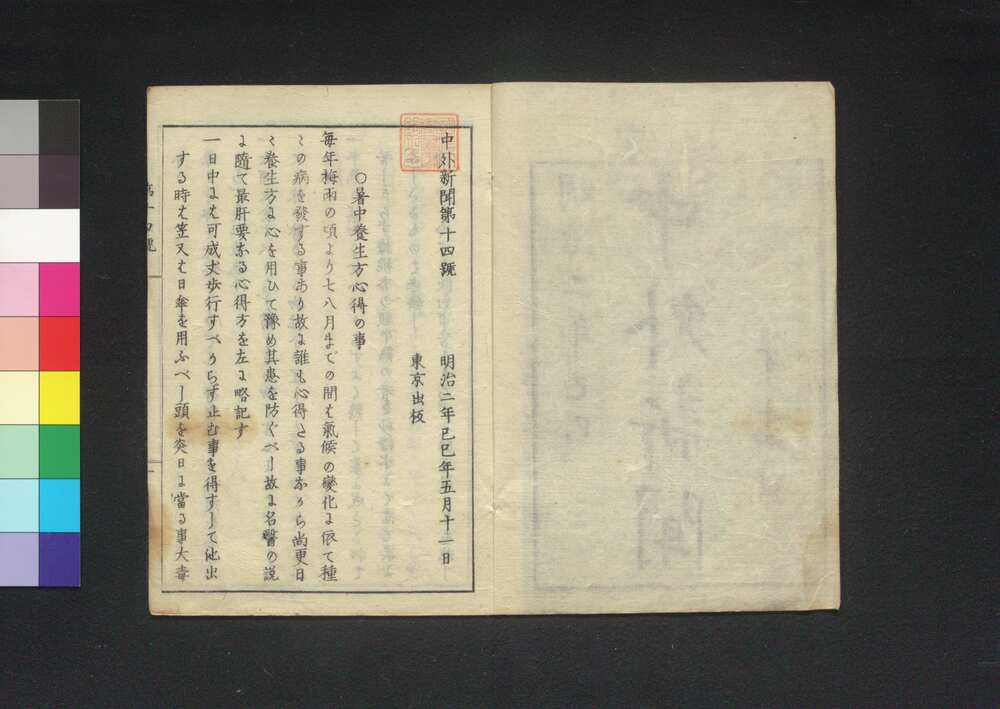 中外新聞第十四號 明治二年己巳年五月十一日
東京出板
○暑中養生方心得の事
毎年梅雨の頃より七八月までの間は氣候の變化に依て種
々の病を發する事あり故に誰も心得たる事ながら尚更日
々養生方に心を用ひて豫め其患を防ぐべし故に名醫の説
に隨て最肝要なる心得方を左に略記す
一日中には可成丈歩行すべからず止む事を得ずして他出
する時は笠又は日傘を用ふべし頭を炎日に當る事大毒
第十四號